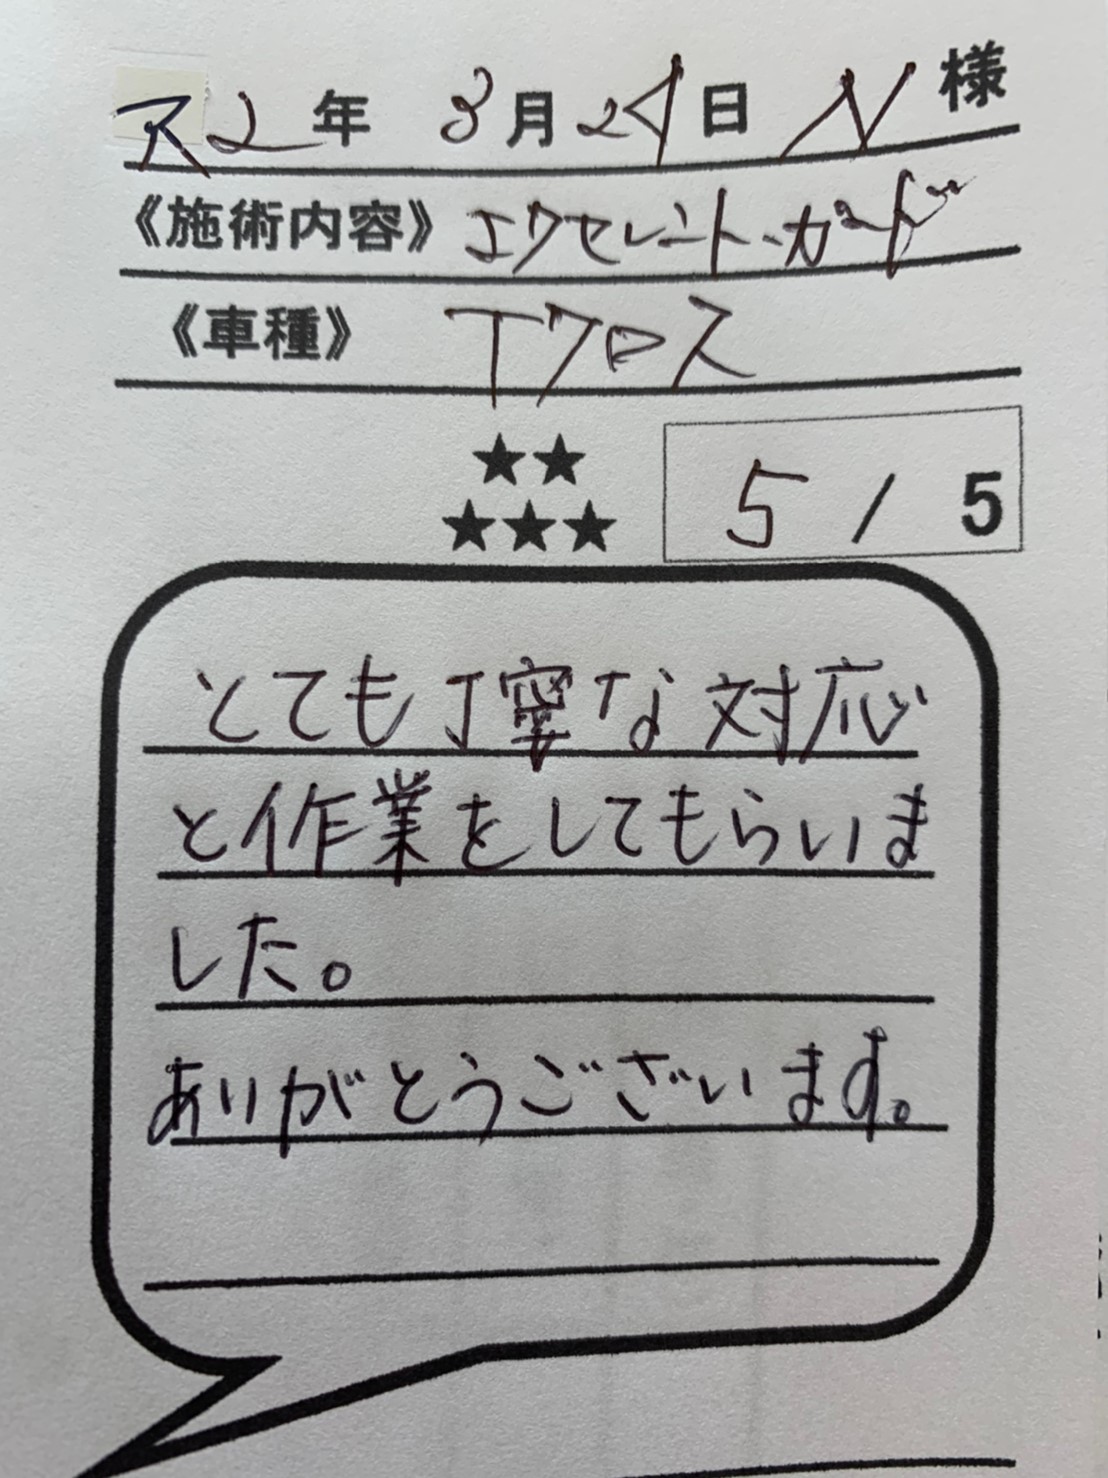 R2年 3月24日 N様
《施術内容》 エクセレント・ガード
《車種》 Tクロス
★★
★★★ 5 / 5
とても丁寧な対応
と作業をしてもらいま
した。
ありがとうございます。